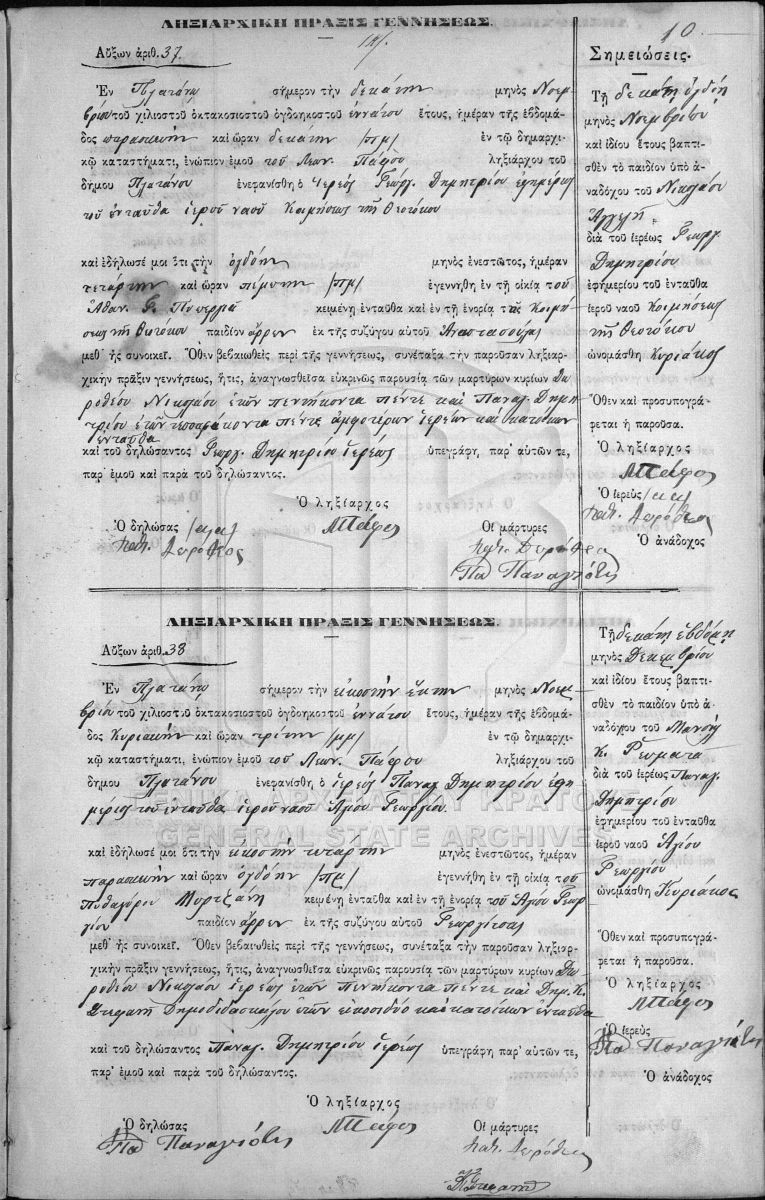 ΛΗΞΙΑΡΧΙΚΗ ΠΡΑΞΙΣ ΓΕΝΝΗΣΕΩΣ.
10
Αὔξων ἀριθ. 37.
Σημειώσεις.
Ἐν Πλατάνῳ σήμερον τὴν δεκάτην μηνὸς Νοεμ-
βρίου τοῦ χιλιοστοῦ ὀκτακοσιοστοῦ ὀγδοηκοστοῦ ἐννάτου ἔτους, ἡμέραν τῆς ἑβδομά-
δος παρασκευὴν καὶ ὥραν δεκάτην /πμ/ ἐν τῷ δημαρχι-
κῷ καταστήματι, ἐνώπιον ἐμοῦ τοῦ Λεων. Πάφου ληξιάρχου τοῦ
δήμου Πλατάνου ἐνεφανίσθη ὁ Ἱερεὺς Γεώργ. Δημητρίου ἐφημέριος
τοῦ ἐνταῦθα ἱεροῦ ναοῦ Κοιμήσεως τῆς Θεοτόκου
καὶ ἐδήλωσέ μοι ὅτι τὴν ὀγδόην μηνὸς ἐνεστῶτος, ἡμέραν
τετάρτην καὶ ὥραν πέμπτην /πμ/ ἐγεννήθη ἐν τῇ οἰκίᾳ τοῦ
Ἀθαν. Γ. κειμένῃ ἐνταῦθα καὶ ἐν τῇ ἐνορίᾳ τῆς Κοιμή-
σεως τῆς Θεοτόκου παιδίον ἄρρεν ἐκ τῆς συζύγου αὐτοῦ Ἀναστασούλας
μεθ᾽ ἧς συνοικεῖ. Ὅθεν βεβαιωθεὶς περὶ τῆς γεννήσεως, συνέταξα τὴν παροῦσαν ληξιαρ-
χικὴν πρᾶξιν γεννήσεως, ἥτις, ἀναγνωσθεῖσα εὐκρινῶς παρουσίᾳ τῶν μαρτύρων κυρίων Δω-
ροθέου Νικολάου ἐτῶν πεντήκοντα πέντε καὶ Παναγ. Δημη-
τρίου ἐτῶν τεσσαράκοντα πέντε ἀμφοτέρων ἱερέων καὶ κατοίκων
ἐνταῦθα
καὶ τοῦ δηλώσαντος Γεωργ. Δημητρίου ἱερέως ὑπεγράφη παρ᾽ αὐτῶν τε,
παρ᾽ ἐμοῦ καὶ παρὰ τοῦ δηλώσαντος.
Ὁ ληξίαρχος
Ὁ δηλώσας Λ Πάφος Οἱ μάρτυρες
Πα Παναγιότις
Τῇ δεκάτῃ ὀγδόῃ
μηνὸς Νοεμβρίου
καὶ ἰδίου ἔτους βαπτι-
σθὲν τὸ παιδίον ὑπὸ ἀ-
ναδόχου τοῦ Νικολάου
Ἀγγελῆ
διὰ τοῦ ἱερέως Γεωργ.
Δημητρίου
ἐφημερίου τοῦ ἐνταῦθα
ἱεροῦ ναοῦ Κοιμήσεως
τῆς Θεοτόκου
ὠνομάσθη Κυριάκος
Ὅθεν καὶ προσυπογρά-
φεται ἡ παροῦσα.
Ὁ ληξίαρχος
Λ Πάφος
Ὁ ἱερεὺς
Ὁ ἀνάδοχος
ΛΗΞΙΑΡΧΙΚΗ ΠΡΑΞΙΣ ΓΕΝΝΗΣΕΩΣ.
Αὔξων ἀριθ. 38
Ἐν Πλατάνῳ σήμερον τὴν εἰκοστὴν ἕκτην μηνὸς Νοεμ-
βρίου τοῦ χιλιοστοῦ ὀκτακοσιοστοῦ ὀγδοηκοστοῦ ἐννάτου ἔτους, ἡμέραν τῆς ἑβδομά-
δος Κυριακὴν καὶ ὥραν τρίτην /μμ/ ἐν τῷ δημαρχι-
κῷ καταστήματι, ἐνώπιον ἐμοῦ τοῦ Λεων. Πάφου ληξιάρχου τοῦ
δήμου Πλατάνου ἐνεφανίσθη ὁ ἱερεὺς Παναγ. Δημητρίου ἐφη-
μέριος τοῦ ἐνταῦθα ἱεροῦ ναοῦ Ἁγίου Γεωργίου.
ΓΕΝΙΚΑ ΑΡΧΕΙΑ ΤΟΥ ΚΡΑΤΟΥΣ
GENERAL STATE ARCHIVES
καὶ ἐδήλωσέ μοι ὅτι τὴν εἰκοστὴν τετάρτην μηνὸς ἐνεστῶτος, ἡμέραν
παρασκευὴν καὶ ὥραν ὀγδόην /πμ/ ἐγεννήθη ἐν τῇ οἰκίᾳ τοῦ
Πυθαγόρου κειμένῃ ἐνταῦθα καὶ ἐν τῇ ἐνορίᾳ τοῦ Ἁγίου Γεωρ-
γίου παιδίον ἄρρεν ἐκ τῆς συζύγου αὐτοῦ Γεωργίτσας
μεθ᾽ ἧς συνοικεῖ. Ὅθεν βεβαιωθεὶς περὶ τῆς γεννήσεως, συνέταξα τὴν παροῦσαν ληξιαρ-
χικὴν πρᾶξιν γεννήσεως, ἥτις, ἀναγνωσθεῖσα εὐκρινῶς παρουσίᾳ τῶν μαρτύρων κυρίων Δω-
ροθέου Νικολάου ἱερέως ἐτῶν πεντήκοντα πέντε καὶ Δημ. Κ.
Στεφανῆ Δημοδιδασκάλου ἐτῶν εἰκοσιδύο καὶ κατοίκων ἐνταῦθα
καὶ τοῦ δηλώσαντος Παναγ. Δημητρίου ἱερέως ὑπεγράφη παρ᾽ αὐτῶν τε,
παρ᾽ ἐμοῦ καὶ παρὰ τοῦ δηλώσαντος.
Ὁ ληξίαρχος
Ὁ δηλώσας Λ Πάφος Οἱ μάρτυρες
Πα Παναγιότις
Τῇ δεκάτῃ ἑβδόμῃ
μηνὸς Δεκεμβρίου
καὶ ἰδίου ἔτους βαπτι-
σθὲν τὸ παιδίον ὑπὸ ἀ-
ναδόχου τοῦ Μανόλη
Κ. Ρεύματα
διὰ τοῦ ἱερέως Παναγ.
Δημητρίου
ἐφημερίου τοῦ ἐνταῦθα
ἱεροῦ ναοῦ Ἁγίου
Γεωργίου
ὠνομάσθη Κυριάκος
Ὅθεν καὶ προσυπογρά-
φεται ἡ παροῦσα.
Ὁ ληξίαρχος
Λ Πάφος
Ὁ ἱερεὺς
Πα Παναγιότις
Ὁ ἀνάδοχος